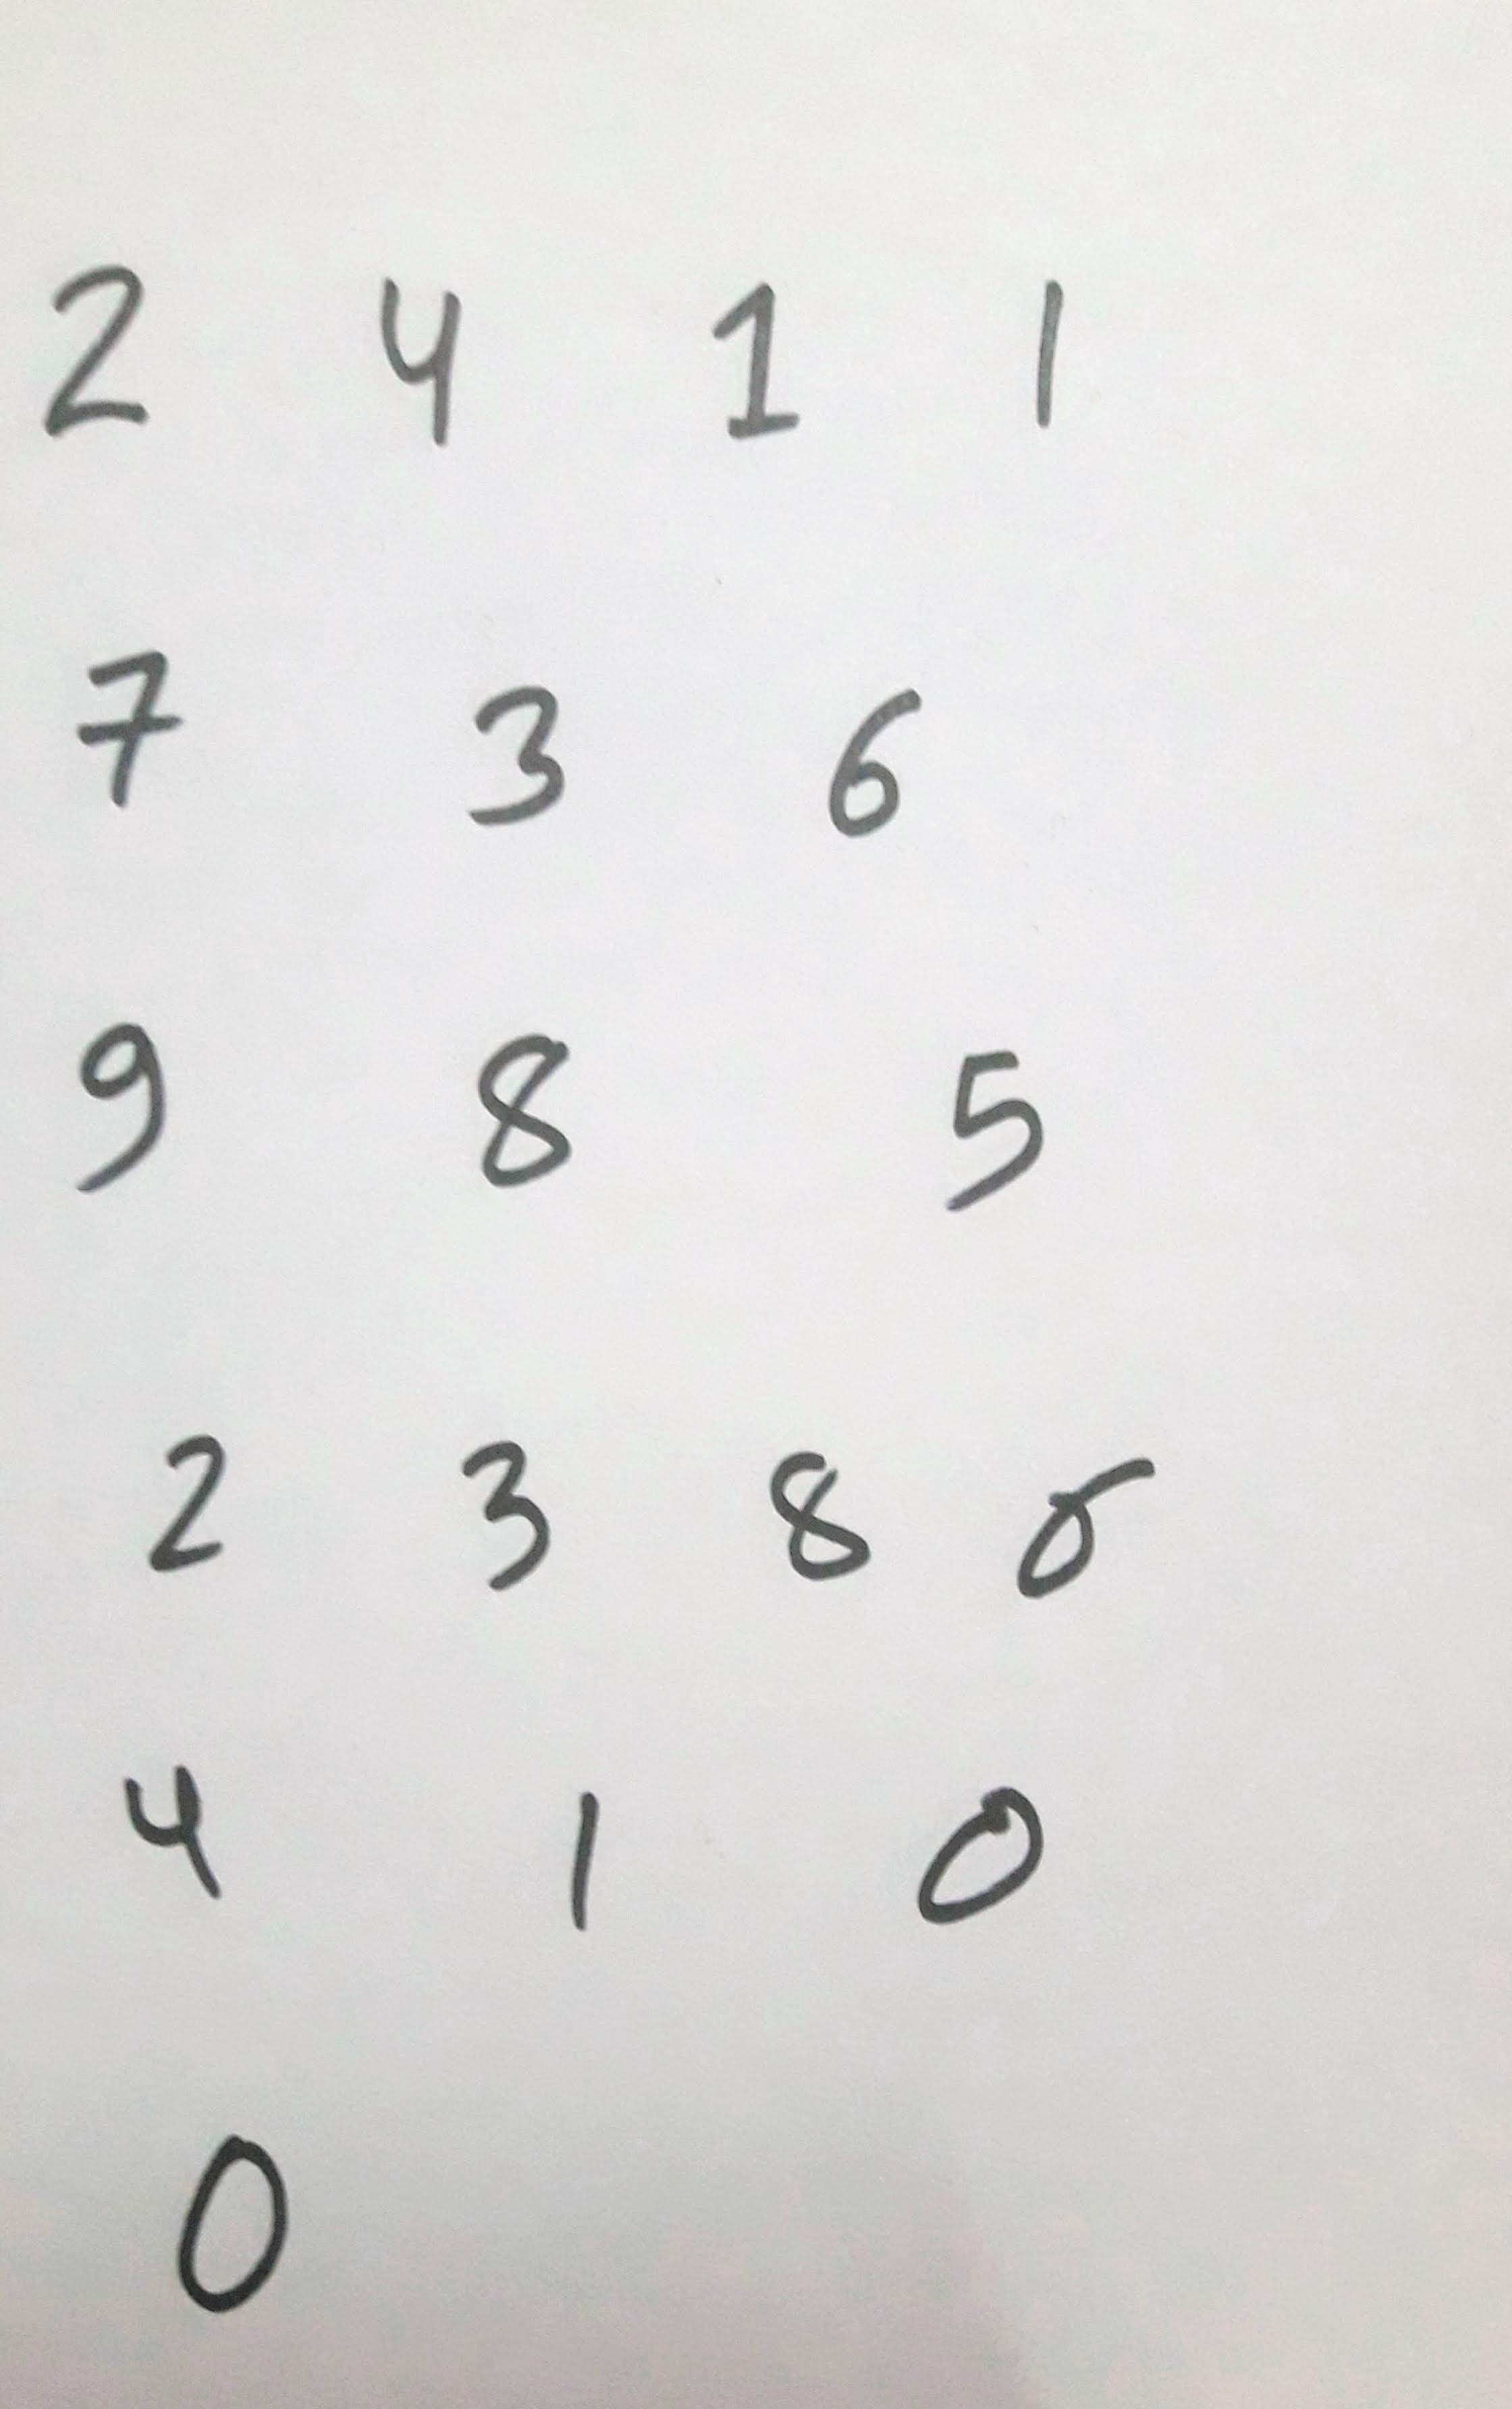 2 4 1 1
7 3 6
9 8 5
2 3 8 6
4 1 0
0